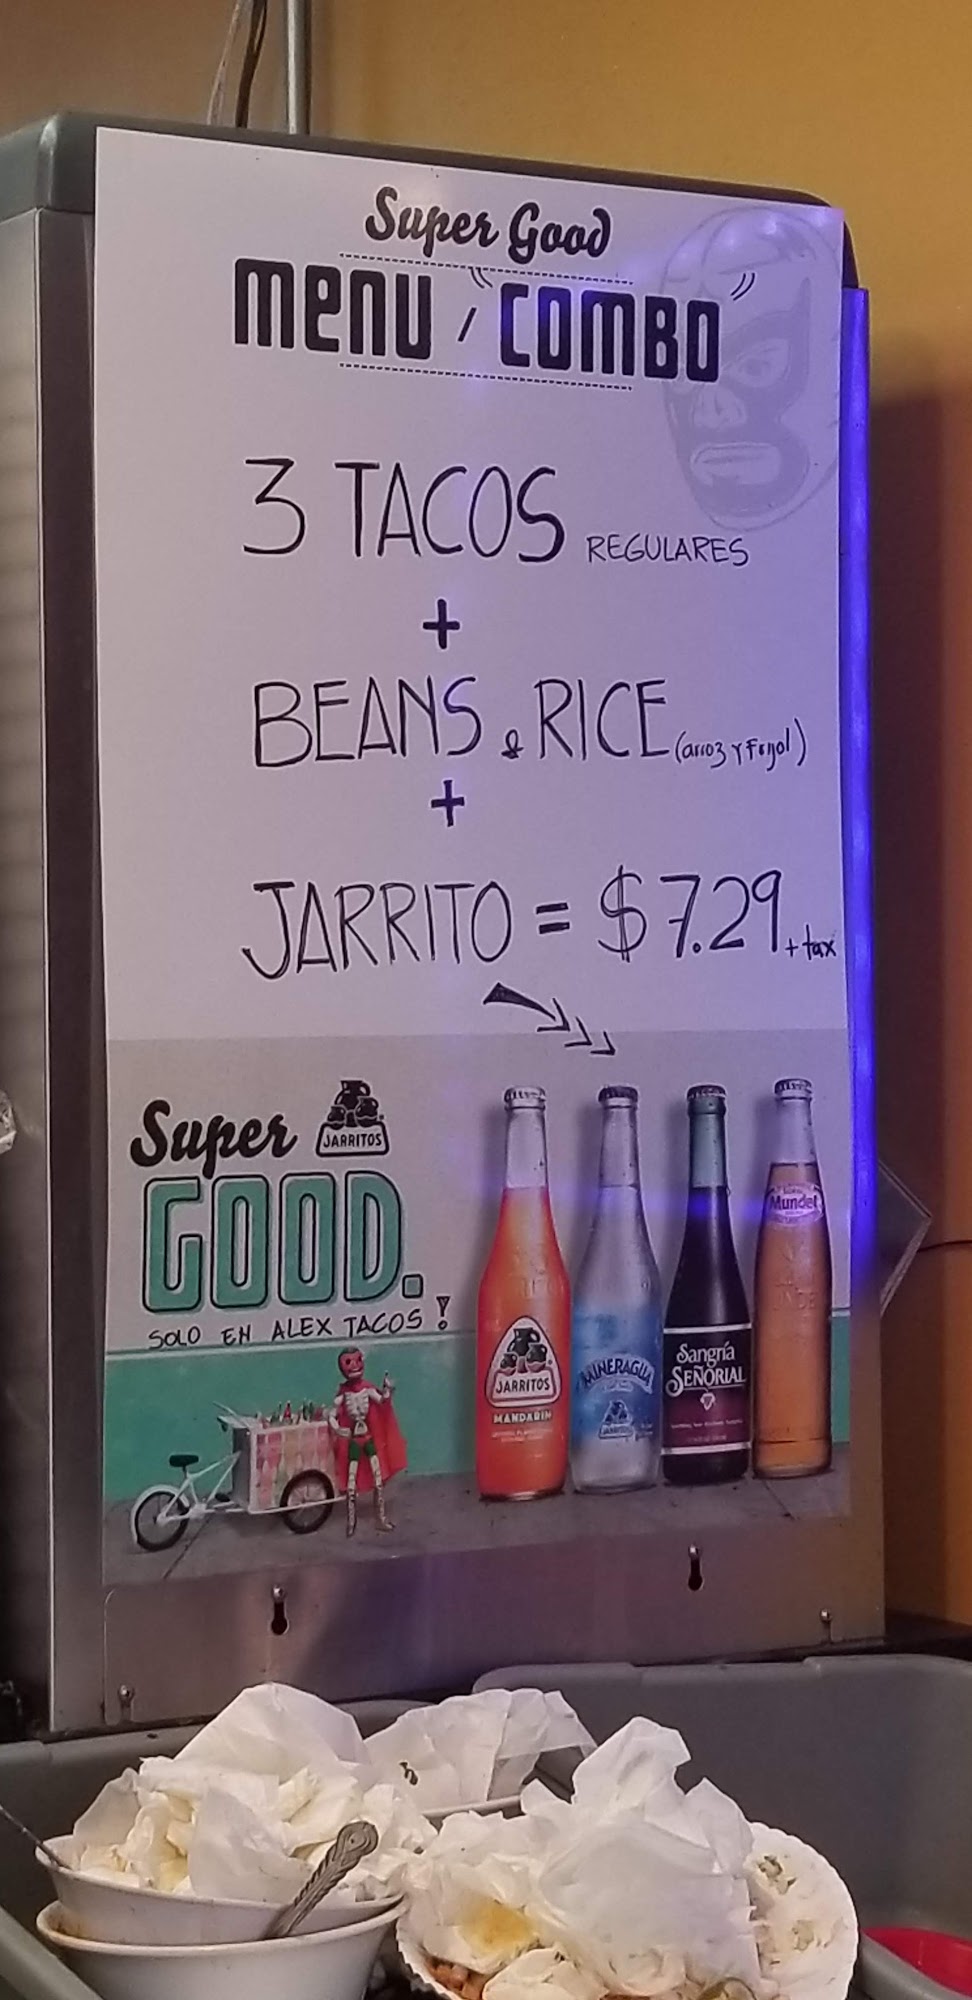 Super Good
MENU / "COMBO"
3 TACOS REGULARES
+
BEANS & RICE (arroz y Frijol)
+
JARRITO = $7.29 + tax
Super JARRITOS
GOOD.
SOLO EN ALEX TACOS!
Mundet
JARRITOS
MANDARIN
MINERAGUA
JARRITOS
Sangría
SEÑORIAL